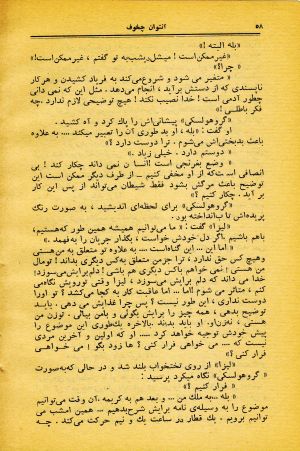 ۵۸
آنتوان چخوف
«بله البته !»
«غیرممکن است ! میشل ریشب به تو گفتم ، غیرممکن است !»
«چرا ؟»
« متغیر می شود و شروع می‌کند به فریاد کشیدن و هر کار
ناپسندی که از دستش برآید ، انجام می‌دهد. مثل این که نمی دانی
چطور آدمی است ! خدا نصیب نکند ! هیچ توضیحی لازم ندارد. چه
فکر باطلی !»
«گروهولسکی» پیشانی‌اش را پاك کرد و آه کشید .
او گفت: «بله ، او بد طوری آن را تعبیر میکند .... به علاوه
باعث بدبختی‌اش می‌شوم . ترا دوست دارد ؟»
«دوستم دارد . خیلی زیاد .»
« وضع بغرنجی است ! انسان نمی داند چکار کند ! بی
انصافی است که از او مخفی کنیم . از طرف دیگر ممکن است این
توضیح باعث مرگش بشود فقط شیطان می‌تواند از پس این کار
بر آید. چکار کنیم ؟»
«گروهولسکی» برای لحظه‌ای اندیشید ، به صورت رنگ
پریده‌اش تاب انداخته بود .
«لیزا» گفت: «ما می‌توانیم همیشه همین طور که هستیم،
باهم باشیم . اگر دل خودش خواست ، بگذار جریان را به فهمد .»
« اما این ... این گناه است ... به علاوه تو متعلق به من هستی
وهیچ کس حق ندارد ، ترا جز من متعلق به کس دیگری بداند! تو مال
من هستی ! نمی خواهم باکس دیگری هم باشی ! دلم برایش می‌سوزد؛
خدا می داند که دلم برایش می‌سوزد ، لیزا وقتی او را پیش نگاه می
کنم ، متأثر می شوم ! اما ... اما عاقبت کار به کجا می‌کشد ؟ تو او را
دوست نداری ، این طور نیست ؟ پس چرا عذابش می دهی . باید
توضیح بدهی ، همه چیز را برایش بگوئی و بامن بیائی . تو زن من
هستی ، نه زن او. او باید بداند. بالاخره یک طوری این موضوع را
پیش خودش توجیه خواهد کرد .... او که اولین و آخرین مردی
نیست که .... می خواهی فرار کنی ؟ ها زود بگو ! می خواهی
فرار کنی ؟»
«لیزا» از روی تختخواب بلند شد و در حالی که به صورت
«گروهولسکی» نگاه میکرد پرسید :
« فرار کنیم ؟»
«بله .... به ملك من .... و بعد هم به کریمه . آن وقت می‌توانیم
موضوع را به وسیله‌ی نامه برایش شرح بدهیم ... همین امشب می
توانیم برویم . یك قطار سر ساعت یك و نیم حرکت می‌کند . چه